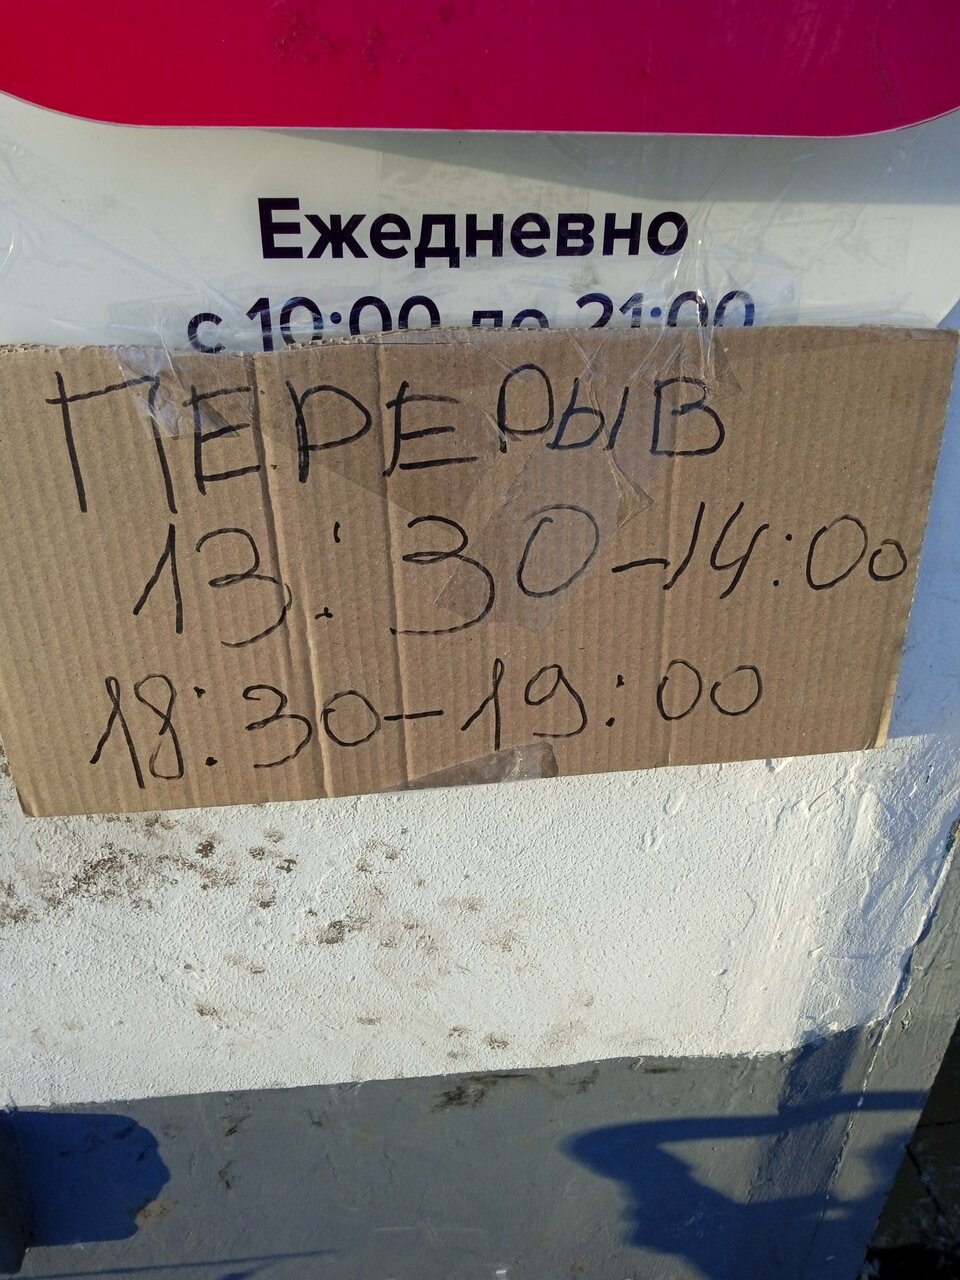 Ежедневно
с 10:00 до 21:00
ПЕРЕРЫВ
13:30-14:00
18:30-19:00